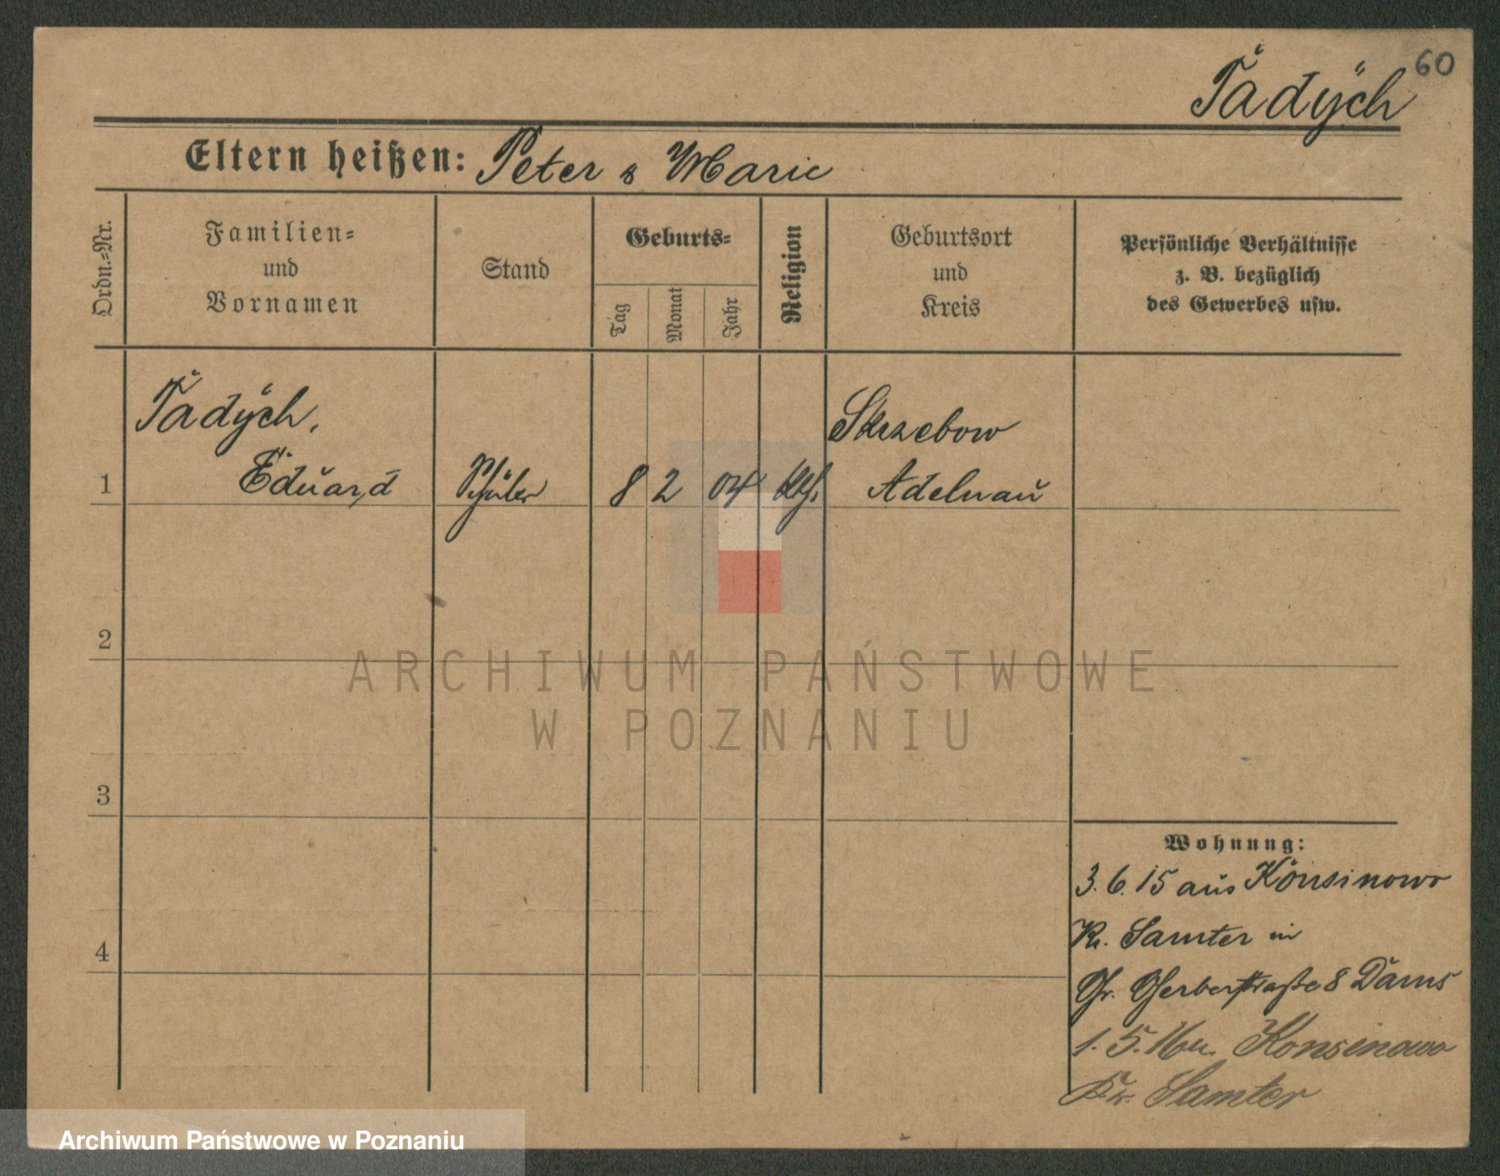 60
Tadych
Eltern heißen: Peter & Marie
Ordn.-Nr.
Familien-
und
Vornamen
Stand
Geburts-
Tag
Monat
Jahr
Religion
Geburtsort
und
Kreis
Persönliche Verhältnisse
z. B. bezüglich
des Gewerbes usw.
Tadych,
Skrzebow
1 Eduard Schüler 8 2 04 kth. Adelnau
2
ARCHIWUM PAŃSTWOWE
W POZNANIU
3
Wohnung:
3. 6. 15 aus Konsinowo
Kr. Samter in
4
Gr. Gerberstraße 8 Dams
1. 5. 16 n. Konsinowo
Kr. Samter
Archiwum Państwowe w Poznaniu